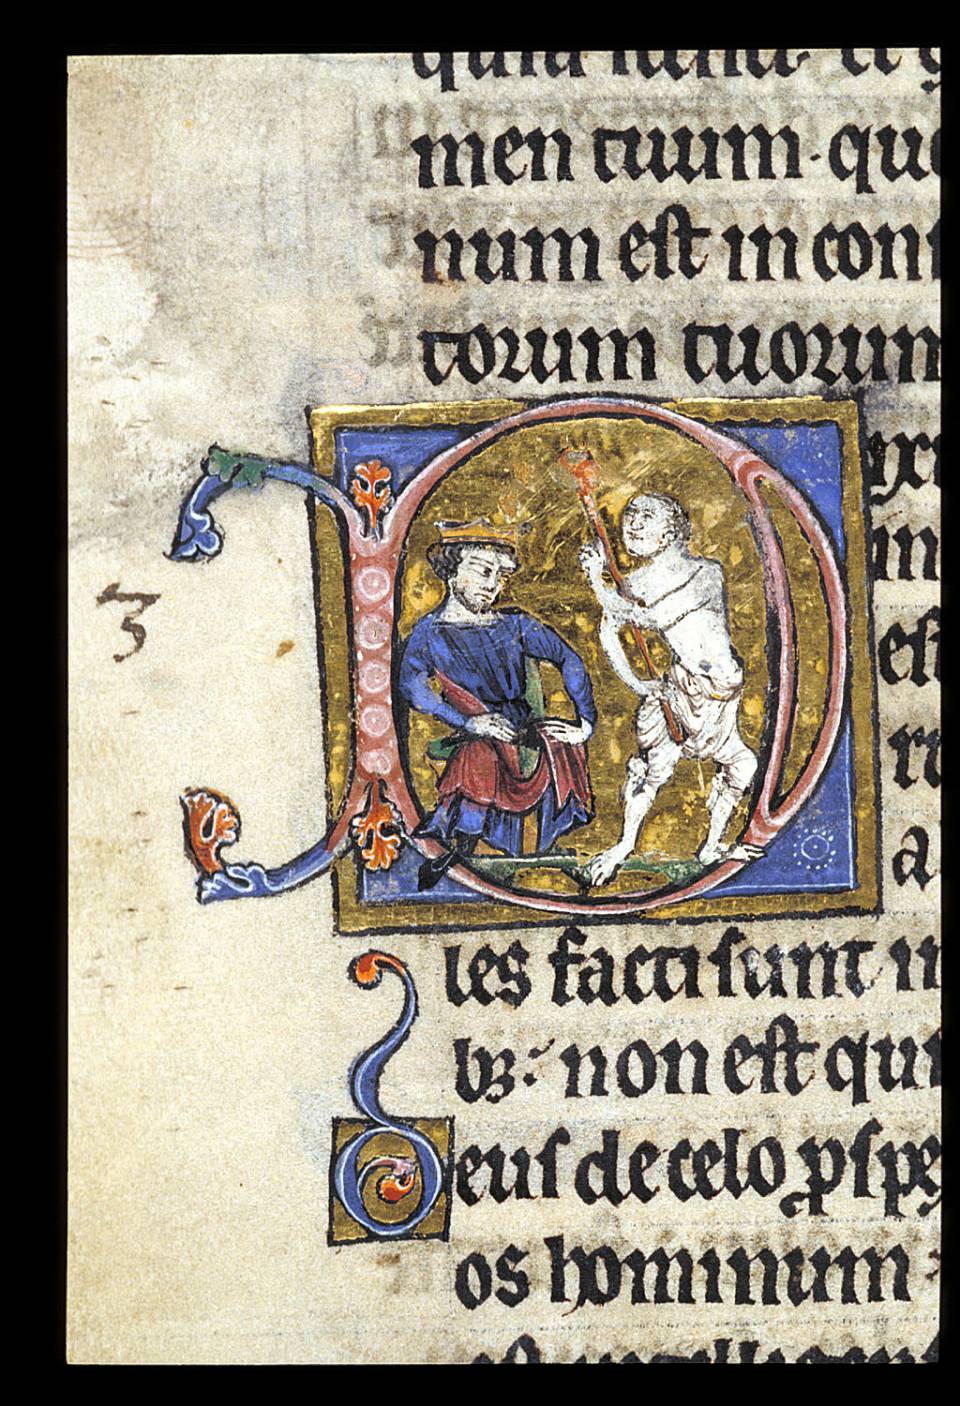 men tuum· que
num est in conſ
torum tuorum
3
D
yxı
in
eſt
rı
a
les facti ſunt in
bꝫ: non eſt qui
Deuſ de celo pſpe
os hominum